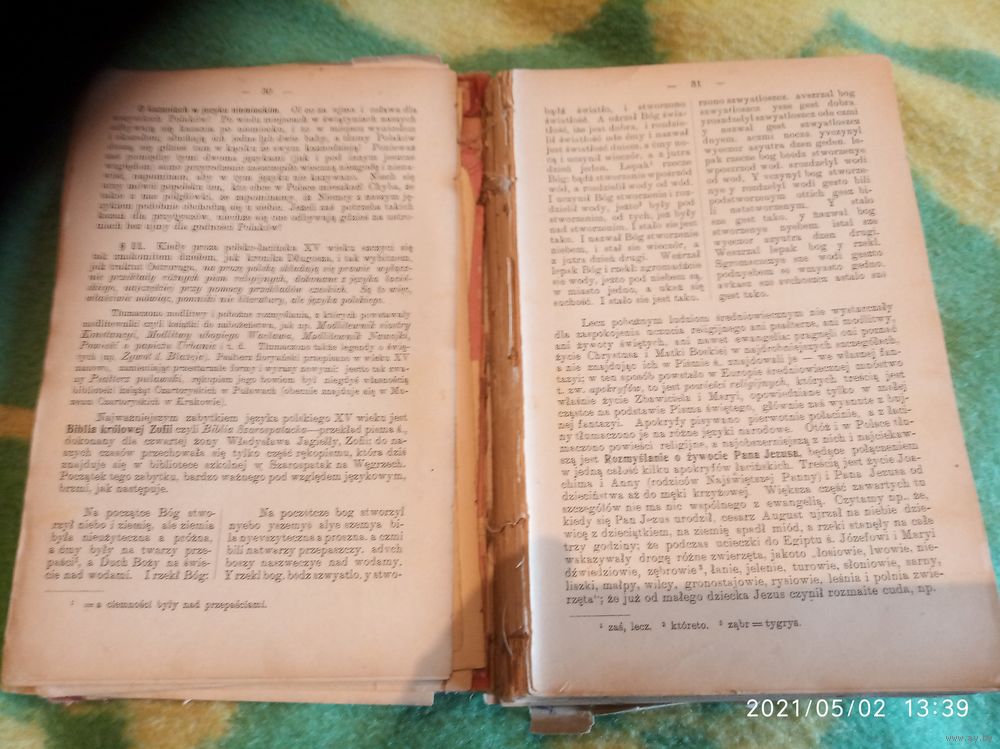 — 30 —
§ 31. Kiedy proza polsko-łacińska XV wieku szczyci się
tak znakomitem dziełem, jak kronika Długosza, i tak wybitnem,
jak traktat Ostroroga, na prozę polską składają się prawie wyłącz-
nie przekłady różnych pism religijnych, dokonane z języka łaciń-
skiego, najczęściej przy pomocy przekładów czeskich. Są to więc,
właściwie mówiąc, pomniki nie literatury, ale języka polskiego.
Tłumaczono modlitwy i pobożne rozmyślania, z których powstawały
modlitewniki czyli książki do nabożeństwa, jak np. Modlitewnik siostry
Konstancyi, Modlitwy ubogiego Wacława, Modlitewnik Nawojki,
Powieść o papieżu Urbanie i t. d. Tłumaczono także legendy o świę-
tych (np. Żywot ś. Błażeja). Psałterz floryański przepisano w wieku XV
nanowo, zamieniając przestarzałe formy i wyrazy nowymi: jest to tak zwa-
ny Psałterz puławski, rękopism jego bowiem był niegdyś własnością
biblioteki książąt Czartoryskich w Puławach (obecnie znajduje się w Mu-
zeum Czartoryskich w Krakowie).
Najważniejszym zabytkiem języka polskiego XV wieku jest
Biblia królowej Zofii czyli Biblia Szarospatacka—przekład pisma ś.,
dokonany dla czwartej żony Władysława Jagiełły, Zofii; do na-
szych czasów przechowała się tylko część rękopismu, która dziś
znajduje się w bibliotece szkolnej w Szarospatak na Węgrzech.
Początek tego zabytku, bardzo ważnego pod względem językowym,
brzmi, jak następuje.
Na początce Bóg stwo-
rzył niebo i ziemię, ale ziemia
była nieużyteczna a próżna,
a ćmy były na twarzy prze-
paści¹, a Duch Boży na świe-
cie nad wodami. I rzekł Bóg:
Na poczøtcze bog stworzył
nyebo yszemyø alye szemya bi-
la nyevszyteczna a proszna. a czmi
bili natwarzy przepaszczy. advch
boszy naszweczye nad wodamy.
Y rzekl bog. bødz szwyatlo, y stwo-
¹ = a ciemności były nad przepaściami.
— 31 —
bądź światło, i stworzono
światłość. A uźrzał Bóg świa-
tłość, iże jest dobra, i rozdzie-
lił światłość ode ćmy i nazwał
jest światłość dniem, a ćmy no-
cą i uczynił wieczór, a z jutra
dzień jeden. Lepak¹ rzecze
Bóg: bądź stworzenie wpośród
wód, a rozdzielił wody od wód.
I uczynił Bóg stworzenie i roz-
dzielił wody, jeżto² były pod
stworzenim, od tych, jeż były
nad stworzenim. I stało sie jest
tako. I nazwał Bóg stworzenie
niebem, i stał sie wieczór, a
z jutra dzień drugi. Weźrzał
lepak Bóg i rzekł: zgromadźcie
sie wody, jeżto pod niebem są,
w miasto jedno, a ukaż się
suchość. I stało sie jest tako.
rzono szwyatloszcz. avszrzal bog
szwyatloszcz ysze gest dobra.
yrozdzelyl szwyatloszcz ode czmi
y nazwal gest szwyatloszcz
dnyem. aczmi noczø yvczynyl
wyeczor asyutra dzen geden. le-
pak rzecze bog bødz stworzenye
wposrzod wod. arozdzelyl wodi
od wod. Y vczynyl bog stworze-
nye y rozdzelyl wodi gesto bili
podstworzonim ottich gesz bi-
li natstworzenym. Y stalo
sze gest tako. y nazwal bog
stworzenye nyebem. istal sze
wyeczor asyutra dzen drugi.
Weszrzal lepak bog y rzekl.
Sgromaczcye sze wodi geszto
podnyebem sø wmyasto gedno.
avkasz sze swchoszcz astalo sze
gest tako.
Lecz pobożnym ludziom średniowiecznym nie wystarczały
dla zaspokojenia uczucia religijnego ani psałterze, ani modlitwy,
ani żywoty świętych, ani nawet ewangelia; pragnęli oni poznać
życie Chrystusa i Matki Boskiej w najdrobniejszych szczegółach,
a nie znajdując ich w Piśmie ś. znajdowali je — we własnej fan-
tazyi; w ten sposób powstało w Europie średniowiecznej mnóstwo
t. zw. apokryfów, to jest powieści religijnych, których treścią jest
właśnie życie Zbawiciela i Maryi, opowiedziane tylko w małej
cząstce na podstawie Pisma świętego, głównie zaś wysnute z buj-
nej fantazyi. Apokryfy pisywano pierwotnie połacinie, a z łaci-
ny tłumaczono je na różne języki narodowe. Otóż i w Polsce tłu-
maczono powieści religijne, a najobszerniejszą z nich i najciekaw-
szą jest Rozmyślanie o żywocie Pana Jezusa, będące połączeniem
w jedną całość kilku apokryfów łacińskich. Treścią jest życie Joa-
chima i Anny (rodziców Najświętszej Panny) i Pana Jezusa od
dzieciństwa aż do męki krzyżowej. Większa część zawartych tu
szczegółów nie ma nic wspólnego z ewangelią. Czytamy np., że,
kiedy się Pan Jezus urodził, cesarz August ujrzał na niebie dzie-
wicę z dzieciątkiem, na ziemię spadł miód, a rzeki stanęły na całe
trzy godziny; że podczas ucieczki do Egiptu ś. Józefowi i Maryi
wskazywały drogę różne zwierzęta, jakoto „łosiowie, lwowie, nie-
dźwiedziowie, zębrowie³, łanie, jelenie, turowie, słoniowie, sarny,
liszki, małpy, wilcy, gronostajowie, rysiowie, leśnia i polnia zwie-
rzęta“; że już od małego dziecka Jezus czynił rozmaite cuda, np.
¹ zaś, lecz. ² któreto. ³ ząbr = tygrys.
2021/05/02 13:39
www.ay.by